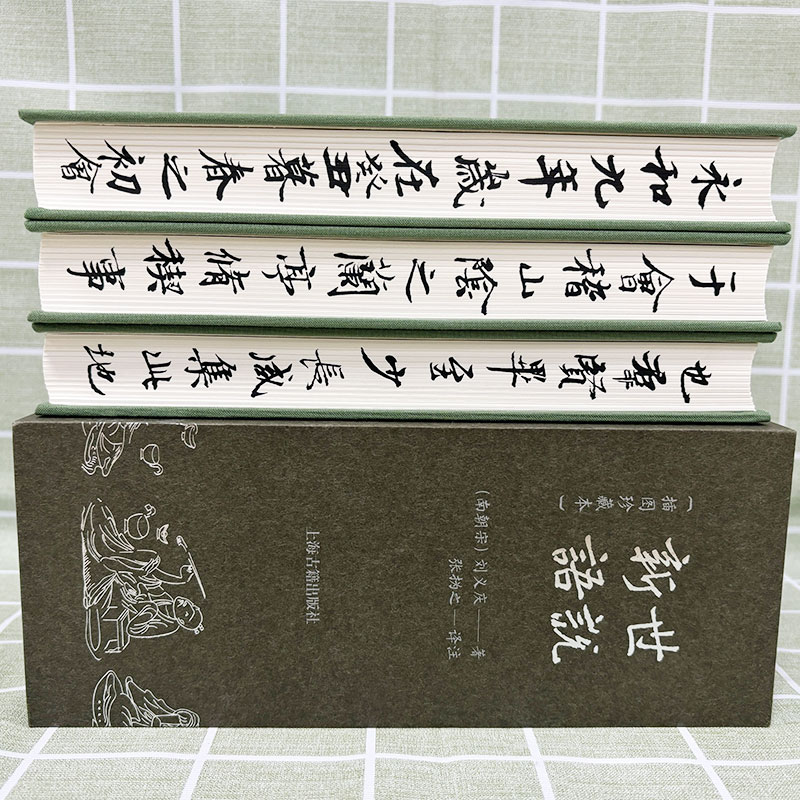 永和九年歲在癸丑暮春之初會
于會稽山陰之蘭亭脩禊事
也羣賢畢至少長咸集此地
世說
新語
〔插图珍藏本〕
(南朝宋)刘义庆——著
张㧑之——译注
上海古籍出版社